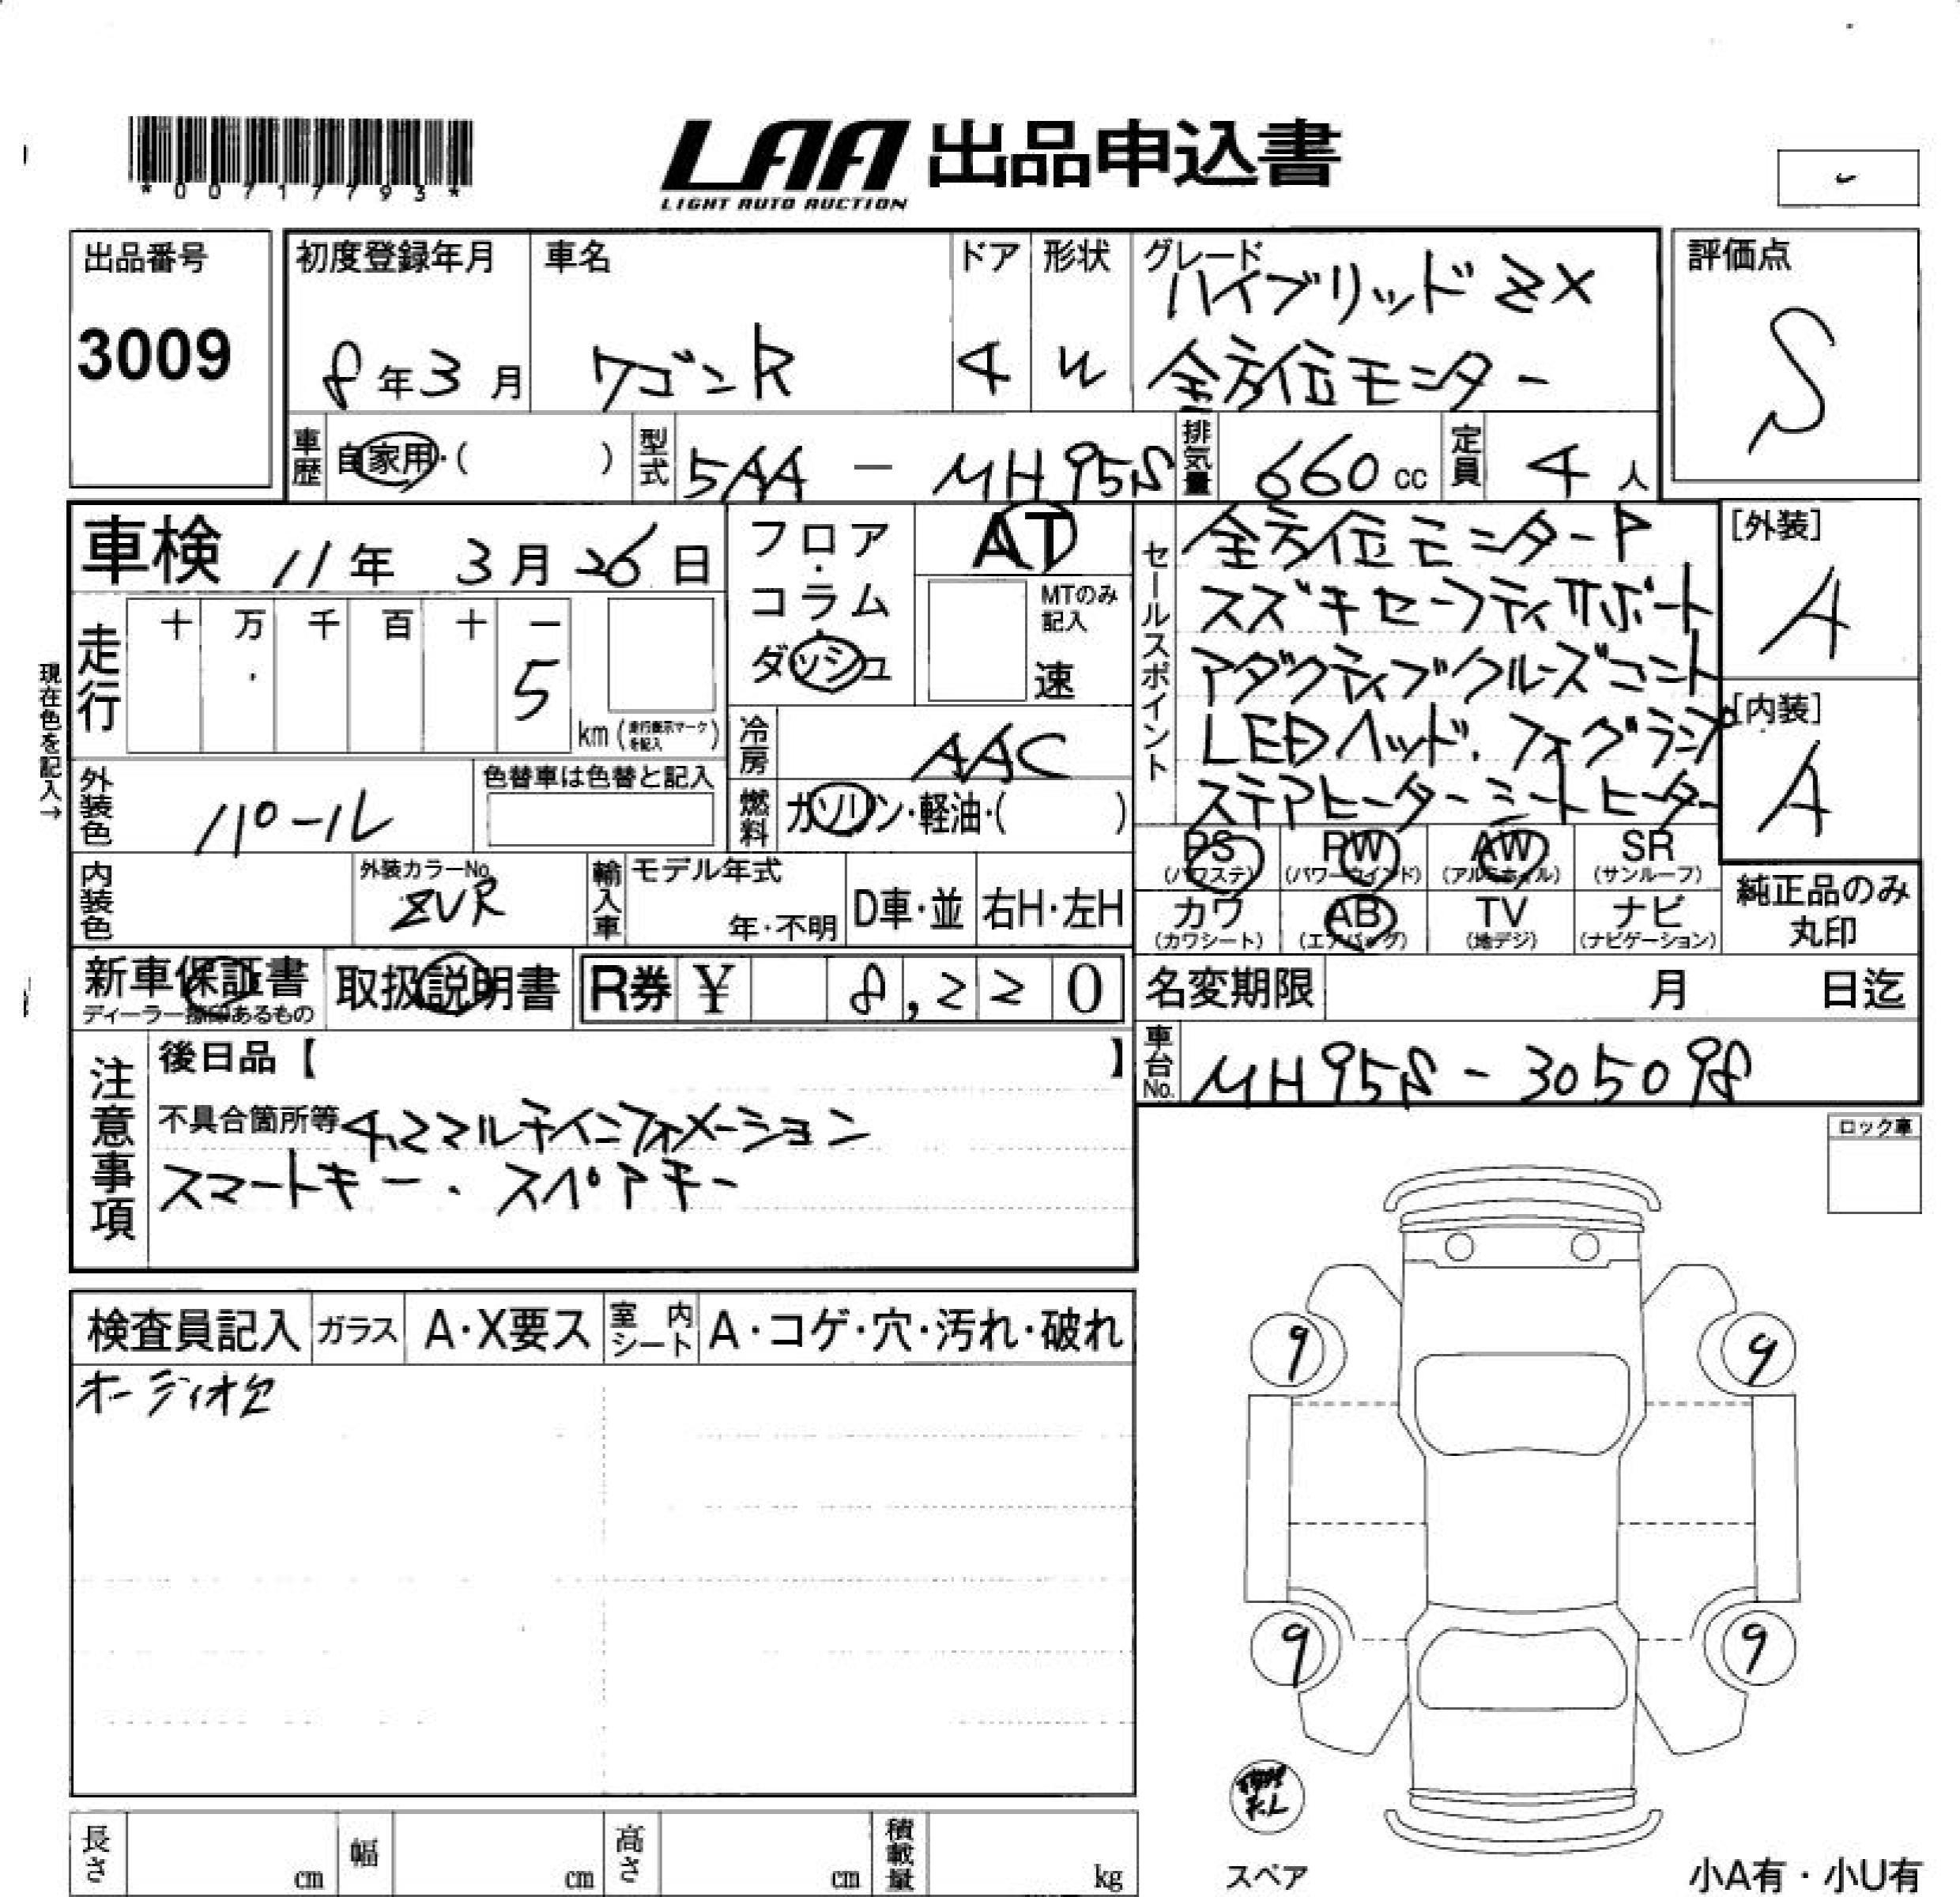 *00717793*
LAA 出品申込書
LIGHT AUTO AUCTION
出品番号
3009
初度登録年月
8年3月
車名
ワゴンR
ドア
4
形状
W
グレード
ハイブリッドZX
全方位モニター
評価点
S
車歴 自家用・( )
型式 5AA - MH95S
排気量 660cc
定員 4人
車検 11年 3月 26日
フロア・コラム・ダッシュ
AT
MTのみ記入
速
セールスポイント
全方位モニターP
スズキセーフティサポート
アダクティブクルーズコント
LEDヘッド.フォグランプ
ステアヒーターシートヒーター
[外装]
A
[内装]
A
現在色を記入→
走行 十 万 千 百 十 一
5
km(走行表示マークを記入)
冷房 AAC
燃料 ガソリン・軽油・( )
外装色 パール
色替車は色替と記入
内装色
外装カラーNo.
ZVR
輸入車 モデル年式
年・不明
D車・並 右H・左H
PS (パワステ)
PW (パワーウインド)
AW (アルミホイル)
SR (サンルーフ)
カワ (カワシート)
AB (エアバッグ)
TV (地デジ)
ナビ (ナビゲーション)
純正品のみ丸印
新車保証書
ディーラー捺印あるもの
取扱説明書
R券 ¥ 8,220
名変期限 月 日迄
車台No. MH95S-305098
注意事項
後日品【 】
不具合箇所等 4.2マルチインフォメーション
スマートキー.スペアキー
ロック車
検査員記入 ガラス A・X要ス 室内シート A・コゲ・穴・汚れ・破れ
オーディオ欠
9 9
9 9
スペア
長さ cm 幅 cm 高さ cm 積載量 kg
小A有・小U有